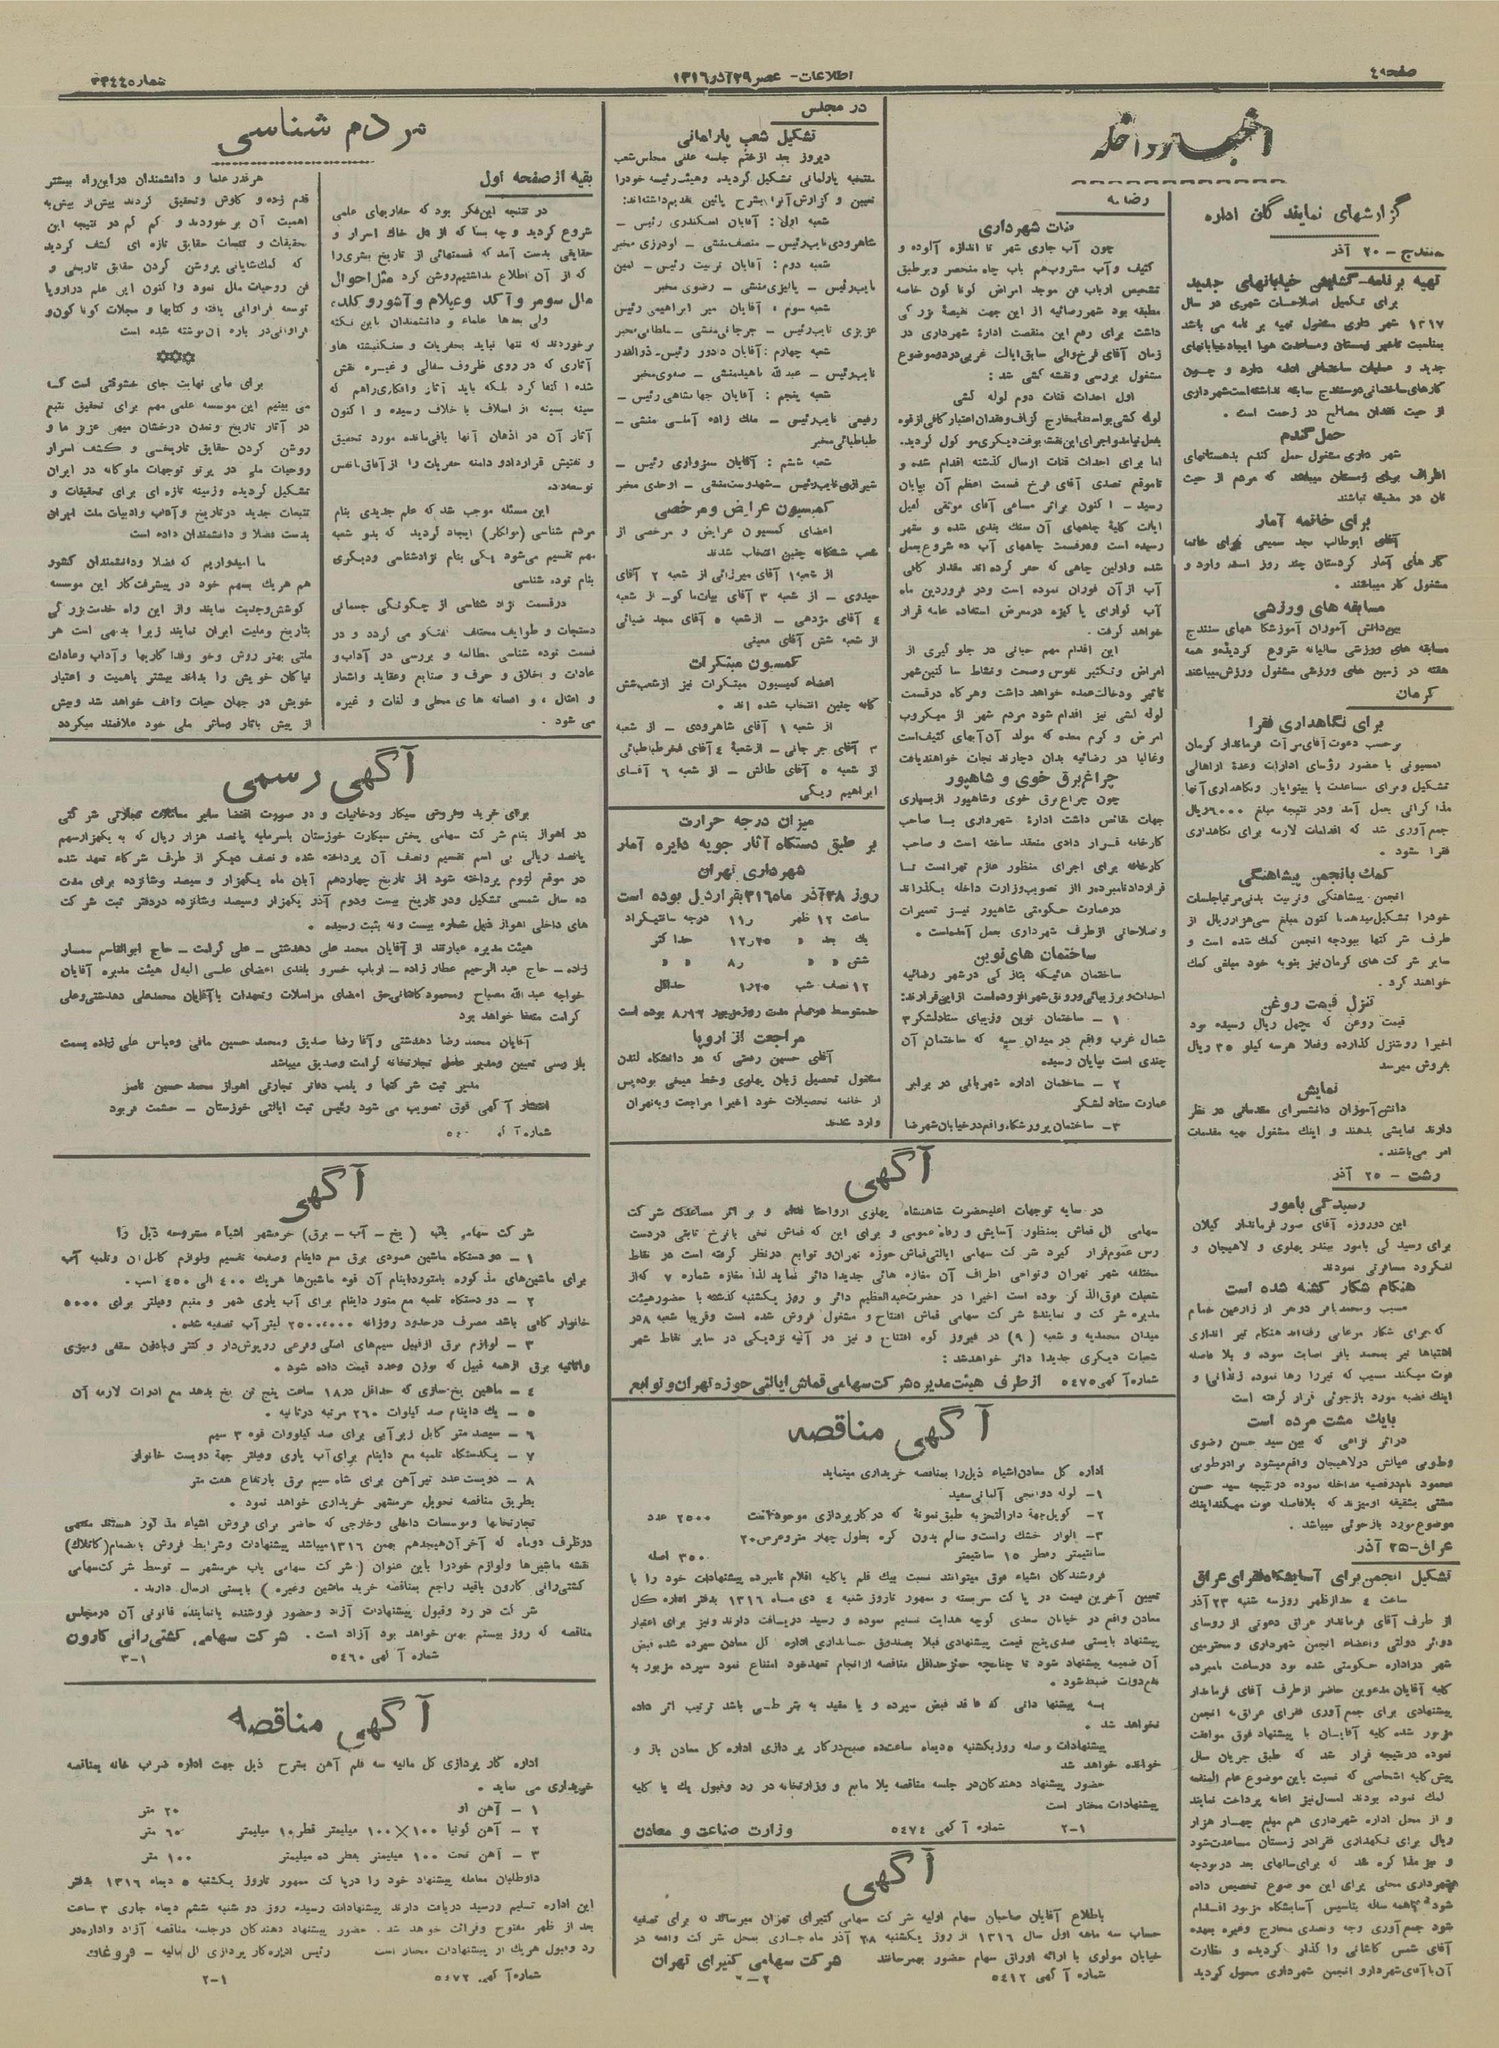 صفحه ۴
اطلاعات - عصر ۲۹ آذر ۱۳۱۶
شماره ۳۳۴۴
اخبار داخله
گزارشهای نمایندگان اداره
سنندج - ۲۰ آذر
تهیه برنامه - گشایش خیابانهای جدید
برای تکمیل اصلاحات شهری در سال
۱۳۱۷ شهرداری مشغول تهیه برنامه می باشد
جدید و عملیات ساختمانی ادامه دارد و چون
از حیث فقدان مصالح در زحمت است .
حمل گندم
شهرداری مشغول حمل گندم بدهستانهای
اطراف برای زمستان میباشد که مردم از حیث
نان در مضیقه نباشند
برای خاتمه آمار
آقای ابوطالب مجد سمیعی برای خاتمه
کارهای آمار کردستان چند روز است وارد و
مشغول کار میباشند .
مسابقه های ورزشی
بین دانش آموزان آموزشگاههای سنندج
مسابقه های ورزشی سالیانه شروع گردیده و همه
هفته در زمین های ورزشی مشغول ورزش میباشند
کرمان
برای نگاهداری فقرا
برحسب دعوت آقای مرآت فرماندار کرمان
کمیسیونی با حضور رؤسای ادارات وعدهٔ ازاهالی
تشکیل وبرای مساعدت با بینوایان ونگاهداری آنها
جمع آوری شد که اقدامات لازمه برای نگاهداری
فقرا بشود .
کمک بانجمن پیشاهنگی
انجمن پیشاهنگی وتربیت بدنی مرتبا جلسات
خودرا تشکیل میدهد تا کنون مبلغ سی هزار ریال از
طرف شرکتها ببودجه انجمن کمک شده است و
سایر شرکت های کرمان نیز بنوبه خود مبلغی کمک
خواهند کرد .
تنزل قیمت روغن
قیمت روغن که بچهل ریال رسیده بود
اخیرا روبتنزل گذارده وفعلا هرسه کیلو ۳۵ ریال
بفروش میرسد
نمایش
دانش آموزان دانشسرای مقدماتی در نظر
دارند نمایشی بدهند و اینک مشغول تهیه مقدمات
امر می باشند .
رشت - ۲۵ آذر
رسیدگی بامور
این دوروزه آقای صور فرماندار گیلان
برای رسیدگی بامور ببندر پهلوی و لاهیجان و
لنگرود مسافرتی نمودند
هنگام شکار کشته شده است
که برای شکار مرغابی رفته اند هنگام تیر اندازی
اشتباها تیر بمحمد باقر اصابت نموده و بلا فاصله
فوت میکند مسبب که تیررا رها نموده زندانی و
اینک قضیه مورد بازجوئی قرار گرفته است
بایک مشت مرده است
دراثر نزاعی که بین سید حسن رضوی
محمود نام درقضیه مداخله نموده درنتیجه سید حسن
مشتی بشقیقه اومیزند که بلافاصله فوت میکند اینک
موضوع مورد بازجوئی میباشد .
عراق - ۲۵ آذر
تشکیل انجمن برای آسایشگاه فقرای عراق
ساعت ٤ بعدازظهر روزسه شنبه ۲۳ آذر
از طرف آقای فرماندار عراق دعوتی از روسای
دوائر دولتی واعضاء انجمن شهرداری و محترمین
شهر دراداره حکومتی شده بود درساعت نامبرده
کلیه آقایان مدعوین حاضر ازطرف آقای فرماندار
پیشنهادی برای جمع آوری فقرای عراق به انجمن
مزبور شده کلیه آقایان با پیشنهاد فوق موافقت
نموده درنتیجه قرار شد که طبق جریان سال
پیش کلیه اشخاصی که نسبت باین موضوع عام المنفعه
کمک نموده بودند امسال نیز اعانه پرداخت نمایند
و از محل اداره شهرداری هم مبلغ چهار هزار
ریال برای نگهداری فقرا در زمستان مساعدت شود
و نیز مذاکره شد که برای سالهای بعد در بودجه
شهرداری محلی برای این موضوع تخصیص داده
شود جمع آوری وجه وتصدی مخارج وغیره بعهده
آقای شمس کاشانی وا گذار گردیده و نظارت
آن با آقای شهردار و انجمن شهرداری محول گردید
رضائیه
قنات شهرداری
چون آب جاری شهر تا اندازه آلوده و
کثیف وآب مشروب هم بآب چاه منحصر وبرطبق
تشخیص ارباب فن موجد امراض گوناگون خاصه
مطبقه بود شهر رضائیه از این جهت نقیصهٔ بزرگی
داشت برای رفع این منقصت ادارهٔ شهرداری در
زمان آقای فرخ والی سابق ایالت غربی دردو موضوع
مشغول بررسی ونقشه کشی شد :
اول احداث قنات دوم لوله کشی
لوله کشی بواسطهٔ مخارج گزاف وفقدان اعتبار کافی از قوه
بفعل نیامد واجرای این نقشه بوقت دیگری موکول گردید .
اما برای احداث قنات ازسال گذشته اقدام شده و
تاموقع تصدی آقای فرخ قسمت اعظم آن بپایان
رسید - اکنون براثر مساعی آقای موثقی کفیل
ایالت کلیهٔ چاههای آن سنک بندی شده و بشهر
رسیده است ودرقسمت چاههای آب ده شروع بعمل
شده واولین چاهی که حفر کرده اند مقدار کافی
آب ازآن فوران نموده است ودر فروردین ماه
آب گوارای پاکیزه درمعرض استفاده عامه قرار
خواهد گرفت .
این اقدام مهم حیاتی در جلوگیری از
امراض وتکثیر نفوس وصحت ونشاط ساکنین شهر
تاثیر ودخالت عمده خواهد داشت وهرگاه درقسمت
لوله کشی نیز اقدام شود مردم شهر از میکروب
امرض و کرم معده که مولد آن آبهای کثیف است
وغالبا در رضائیه بدان دچارند نجات خواهند یافت
چراغ برق خوی و شاهپور
چون چراغ برق خوی وشاهپور ازبسیاری
جهات نقائص داشت ادارهٔ شهرداری با صاحب
کارخانه قراردادی منعقد ساخته است و صاحب
کارخانه برای اجرای منظور عازم تهران است تا
قرارداد نامبرده را از تصویب وزارت داخله بگذراند
درعمارت حکومتی شاهپور نیز تعمیرات
واصلاحاتی ازطرف شهرداری بعمل آمده است .
ساختمان های نوین
ساختمان هائیکه بتازگی درشهر رضائیه
احداث وبرزیبائی ورونق شهر افزوده است ازاین قرارند :
۱ - ساختمان نوین وزیبای ستاد لشکر ۳
شمال غرب واقع در میدان سپه که ساختمان آن
چندی است بپایان رسیده
۲ - ساختمان اداره شهربانی در برابر
عمارت ستاد لشکر
۳ - ساختمان پرورشگاه واقع درخیابان شهرضا
در مجلس
تشکیل شعب پارلمانی
دیروز بعد ازختم جلسه علنی مجلس شعب
ششگانه پارلمانی تشکیل گردیده وهیئت رئیسه خودرا
تعیین و گزارش آنرا بشرح پائین تقدیم داشته اند :
شعبه اول : آقایان اسکندری رئیس -
شاهرودی نایب رئیس - منصف منشی - اورنگی مخبر
شعبه دوم : آقایان تربیت رئیس - امین
نایب رئیس - پالیزی منشی - رضوی مخبر
شعبه سوم : آقایان میر ابراهیمی رئیس
عزیزی نایب رئیس - جرجانی منشی - سلطانی مخبر
شعبه چهارم : آقایان دادور رئیس - ذوالقدر
نایب رئیس - عبدالله ناهید منشی - صفوی مخبر
شعبه پنجم : آقایان جهانشاهی رئیس -
رفیعی نایب رئیس - ملک زاده آملی منشی -
طباطبائی مخبر
شعبه ششم : آقایان سبزواری رئیس -
شیرازی نایب رئیس - شهدوست منشی - اوحدی مخبر
کمیسیون عرایض ومرخصی
اعضای کمیسیون عرایض و مرخصی از
شعب ششگانه چنین انتخاب شدند
از شعبه ۱ آقای میرزائی از شعبه ۲ آقای
حیدری - از شعبه ۳ آقای بیات ماکو - از شعبه
٤ آقای مژدهی - ازشعبه ٥ آقای مجد ضیائی
از شعبه شش آقای معینی
کمیسیون مبتکرات
اعضاء کمیسیون مبتکرات نیز ازشعب شش
گانه چنین انتخاب شده اند .
از شعبه ۱ آقای شاهرودی - از شعبه
۳ آقای جرجانی - ازشعبهٔ ٤ آقای فخر طباطبائی
از شعبه ٥ آقای طالش - از شعبه ٦ آقای
ابراهیم ریگی
میزان درجه حرارت
بر طبق دستگاه آثار جویه دایره آمار
شهرداری تهران
روز ۲۸ آذر ماه ۳۱٦ بقرار ذیل بوده است
ساعت ۱۲ ظهر ۱۱٫ درجه سانتیگراد
۱۲ نصف شب ۱٫۲٥ حداقل
حدمتوسط درتمام مدت روز مزبور ۸٫۱۲ بوده است
مراجعت از اروپا
آقای حسین رهنی که در دانشگاه لندن
مشغول تحصیل زبان پهلوی وخط میخی بوده پس
از خاتمه تحصیلات خود اخیرا مراجعت و به تهران
وارد شدند
مردم شناسی
بقیه از صفحه اول
در نتیجه این فکر بود که حفاریهای علمی
شروع گردید و چه بسا که از دل خاک اسرار و
حقایقی بدست آمد که قسمتهائی از تاریخ بشری را
که از آن اطلاع نداشتیم روشن کرد مثل احوال
ملل سومر و آکد و عیلام و آشور و کلده .
ولی بعدها علماء و دانشمندان باین نکته
برخوردند که تنها نباید بحفریات و سنگنبشته ها و
آثاری که در روی ظروف سفالی و غیره نقش
شده اکتفا کرد بلکه باید آثار وافکاری راهم که
سینه بسینه از اسلاف با خلاف رسیده و اکنون
آثار آن در اذهان آنها باقی مانده مورد تحقیق
و تفتیش قرارداد و دامنه حفریات را از آفاق بانفس
توسعه داد .
این مسئله موجب شد که علم جدیدی بنام
مردم شناسی (فولکلر) ایجاد گردید که بدو شعبه
مهم تقسیم می شود یکی بنام نژادشناسی ودیگری
بنام توده شناسی
درقسمت نژاد شناسی از چگونگی جسمانی
دستجات و طوایف مختلف گفتگو می گردد و در
قسمت توده شناسی مطالعه و بررسی در آداب و
عادات و اخلاق و حرف و صنایع وعقاید واشعار
و امثال و افسانه های محلی و لغات و غیره
می شود .
هرقدر علما و دانشمندان دراین راه بیشتر
قدم زده و کاوش وتحقیق کردند بیش از پیش به
اهمیت آن برخوردند و کم کم در نتیجه این
تحقیقات و تتبعات حقایق تازه ای کشف گردید
که کمک شایانی بروشن کردن حقایق تاریخی و
فن روحیات ملل نمود واکنون این علم دراروپا
توسعه فراوانی یافته و کتابها و مجلات گوناگون و
فراوانی در باره آن نوشته شده است
برای ما بی نهایت جای خشوقتی است که
می بینیم این موسسه علمی مهم برای تحقیق وتتبع
در آثار تاریخ وتمدن درخشان میهن عزیز ما و
روشن کردن حقایق تاریخی و کشف اسرار
روحیات ملی در پرتو توجهات ملوکانه در ایران
تشکیل گردیده وزمینه تازه ای برای تحقیقات و
تتبعات جدید درتاریخ و آداب وادبیات ملت ایران
بدست فضلا و دانشمندان داده است
ما امیدواریم که فضلا ودانشمندان کشور
هم هریک بسهم خود در پیشرفت کار این موسسه
کوشش وجدیت نمایند واز این راه خدمت بزرگی
بتاریخ وملیت ایران نمایند زیرا بدیهی است هر
ملتی بهتر روش وخو وفداکاریها و آداب وعادات
نیاکان خویش را بداند بیشتر باهمیت و اعتبار
خویش در جهان حیات واقف خواهد شد وبیش
از پیش بآثار ومآثر ملی خود علاقمند میگردد
آگهی رسمی
برای خرید وفروش سیگار ودخانیات و در صورت اقتضا سایر معاملات تجارتی شرکتی
در اهواز بنام شرکت سهامی پخش سیگارت خوزستان باسرمایه پانصد هزار ریال که به یکهزارسهم
پانصد ریالی بی اسم تقسیم ونصف آن پرداخته شده و نصف دیگر از طرف شرکاء تعهد شده
در موقع لزوم پرداخته شود از تاریخ چهاردهم آبان ماه یکهزار و سیصد وشانزده برای مدت
ده سال شمسی تشکیل ودر تاریخ بیست ودوم آذر یکهزار وسیصد وشانزده دردفتر ثبت شرکت
های داخلی اهواز ذیل شماره بیست ونه بثبت رسیده .
هیئت مدیره عبارتند از آقایان محمد علی دهدشتی - علی کرامت - حاج ابوالقاسم معمار
زاده - حاج عبدالرحیم عطارزاده - ارباب خسرو بلندی اعضای علی البدل هیئت مدیره آقایان
خواجه عبدالله مصباح ومحمود کاشانی حق امضای مراسلات وتعهدات با آقایان محمدعلی دهدشتی وعلی
کرامت متفقا خواهد بود
آقایان محمد رضا دهدشتی و آقا رضا صدیق ومحمد حسین مافی وعباس علی زاده بسمت
بازرسی تعیین ومدیر عامل تجارتخانه کرامت وصدیق میباشد
مدیر ثبت شرکتها و پلمب دفاتر تجارتی اهواز محمد حسین ناصر
انتشار آگهی فوق تصویب می شود رئیس ثبت ایالتی خوزستان - حشمت فربود
آگهی
شرکت سهامی یاب ( یخ - آب - برق) خرمشهر اشیاء مشروحه ذیل را
۱ - دو دستگاه ماشین عمودی برق مع داینام وصفحه تقسیم ولوازم کامل آن وتلمبه آب
برای ماشین های مذکوره باموتور داینام آن قوه ماشین ها هریک ٤۰۰ الی ٤٥۰ اسب .
۲ - دو دستگاه تلمبه مع متور داینام برای آب یاری شهر و منبع وفیلتر برای ٥۰۰۰
خانوار کافی باشد مصرف درحدود روزانه ۲٥۰۰،۰۰۰ لیتر آب تصفیه شده .
۳ - لوازم برق ازقبیل سیم های اصلی وفرعی روپوش دار و کنتر وبادزن سقفی ومیزی
واثاثیه برق ازهمه قبیل که بوزن وعدد قیمت داده شود .
٤ - ماشین یخ سازی که حداقل در ۱۸ ساعت پنج تن یخ بدهد مع ادوات لازمه آن
٥ - یک داینام صد کیلوات ۲٦۰ مرتبه درثانیه .
٦ - سیصد متر کابل زیر آبی برای صد کیلووات قوه ۳ سیم
۷ - یکدستگاه تلمبه مع داینام برای آب یاری وفیلتر جهة دویست خانوار
۸ - دویست عدد تیر آهن برای شاه سیم برق بارتفاع هفت متر
بطریق مناقصه تحویل خرمشهر خریداری خواهد نمود .
تجارتخانها وموسسات داخلی وخارجی که حاضر برای فروش اشیاء مذکور هستند منتهی
درظرف دوماه که آخر آن هیجدهم بهمن ۱۳۱٦ میباشد پیشنهادات وشرایط فروش بانضمام (کاتالک)
نقشه ماشین ها ولوازم خودرا باین عنوان ( شرکت سهامی یاب خرمشهر - توسط شرکت سهامی
کشتی رانی کارون باقید راجع بمناقصه خرید ماشین وغیره ) بایستی ارسال دارند .
شرکت در رد وقبول پیشنهادات آزاد وحضور فروشنده یا نماینده قانونی آن درمجلس
مناقصه که روز بیستم بهمن خواهد بود آزاد است . شرکت سهامی کشتی رانی کارون
شماره آگهی ٥٤٦۰ ۳-۱
آگهی مناقصه
اداره کارپردازی کل مالیه سه قلم آهن بشرح ذیل جهت اداره ضرب خانه بمناقصه
خریداری می نماید .
۱ - آهن ۲۰ متر
۲ - آهن گونیا ۱۰۰×۱۰۰ میلیمتر قطر ۱۰ میلیمتر ٦۰ متر
۳ - آهن تخت ۱۰۰ میلیمتر بقطر ده میلیمتر ۱۰۰ متر
داوطلبان معامله پیشنهاد خود را درپاکت ممهور تاروز یکشنبه ٥ دیماه ۱۳۱٦ بدفتر
این اداره تسلیم ورسید دریافت دارند پیشنهادات رسیده روز دو شنبه ششم دیماه جاری ۳ ساعت
بعد از ظهر مفتوح وقرائت خواهد شد . حضور پیشنهاد دهندگان درجلسه مناقصه آزاد واداره در
رد وقبول هریک از پیشنهادات مختار است رئیس اداره کارپردازی کل مالیه - فروغان
شماره آگهی ٥٤۷۲ ۲-۱
آگهی
در سایه توجهات اعلیحضرت شاهنشاه پهلوی ارواحنا فداه و بر اثر مساعدت شرکت
سهامی کل قماش بمنظور آسایش و رفاه عمومی و برای این که قماش نخی بانرخ ثابتی دردست
رس عموم قرار گیرد شرکت سهامی ایالتی قماش حوزه تهران و توابع درنظر گرفته است در نقاط
مختلفه شهر تهران ونواحی اطراف آن مغازه هائی جدیدا دائر نماید لذا مغازه شماره ۷ که از
شعبات فوق الذکر بوده است اخیرا در حضرت عبدالعظیم دائر و روز یکشنبه گذشته با حضور هیئت
مدیره شرکت و نمایندهٔ شرکت سهامی قماش افتتاح و مشغول فروش شده است وقریبا شعبه ۸ در
میدان محمدیه و شعبه (۹) در فیروز کوه افتتاح و نیز در آتیه نزدیکی در سایر نقاط شهر
شعبات دیگری جدیدا دائر خواهد شد :
شماره آگهی ٥٤۷٥ از طرف هیئت مدیره شرکت سهامی قماش ایالتی حوزه تهران و توابع
آگهی مناقصه
اداره کل معادن اشیاء ذیل را بمناقصه خریداری مینماید
۱ - لوله دو اینچی آلمانی سفید
۲ - کوپل جهة دارالتجزیه طبق نمونهٔ که در کارپردازی موجود است ۲٥۰۰ عدد
۳ - الوار خشک راست وسالم بدون گره بطول چهار متر وعرض ۲۰
سانتیمتر وقطر ۱٥ سانتیمتر ۳٥۰ اصله
فروشندگان اشیاء فوق میتوانند نسبت بیک قلم یا کلیه اقلام نامبرده پیشنهادات خود را با
تعیین آخرین قیمت در پاکت سربسته و ممهور تاروز شنبه ٤ دی ماه ۱۳۱٦ بدفتر اداره کل
معادن واقع در خیابان سعدی کوچه هدایت تسلیم نموده و رسید دریافت دارند ونیز برای اعتبار
پیشنهاد بایستی صدی پنج قیمت پیشنهادی قبلا بصندوق حسابداری اداره کل معادن سپرده شده قبض
آن ضمیمه پیشنهاد شود تا چنانچه حائز حداقل مناقصه ازانجام تعهدخود امتناع نمود سپرده مزبور به
نفع دولت ضبط شود .
بسه پیشنهاداتی که فاقد قبض سپرده و یا مقید به شرطی باشد ترتیب اثر داده
نخواهد شد .
پیشنهادات واصله روز یکشنبه ٥ دیماه ساعت ده صبح در کارپردازی اداره کل معادن باز و
خوانده خواهد شد
حضور پیشنهاد دهندگان در جلسه مناقصه بلا مانع و وزارتخانه در رد وقبول یک یا کلیه
پیشنهادات مختار است
۲-۱ شماره آگهی ٥٤۷٤ وزارت صناعت و معادن
آگهی
باطلاع آقایان صاحبان سهام اولیه شرکت سهامی کتیرای تهران میرساند که برای تصفیه
حساب سه ماهه اول سال ۱۳۱٦ از روز یکشنبه ۲۸ آذر ماه جاری بمحل شرکت واقعه در
خیابان مولوی با ارائه اوراق سهام حضور بهمرسانند شرکت سهامی کتیرای تهران
شماره آگهی ٥٤۱۲